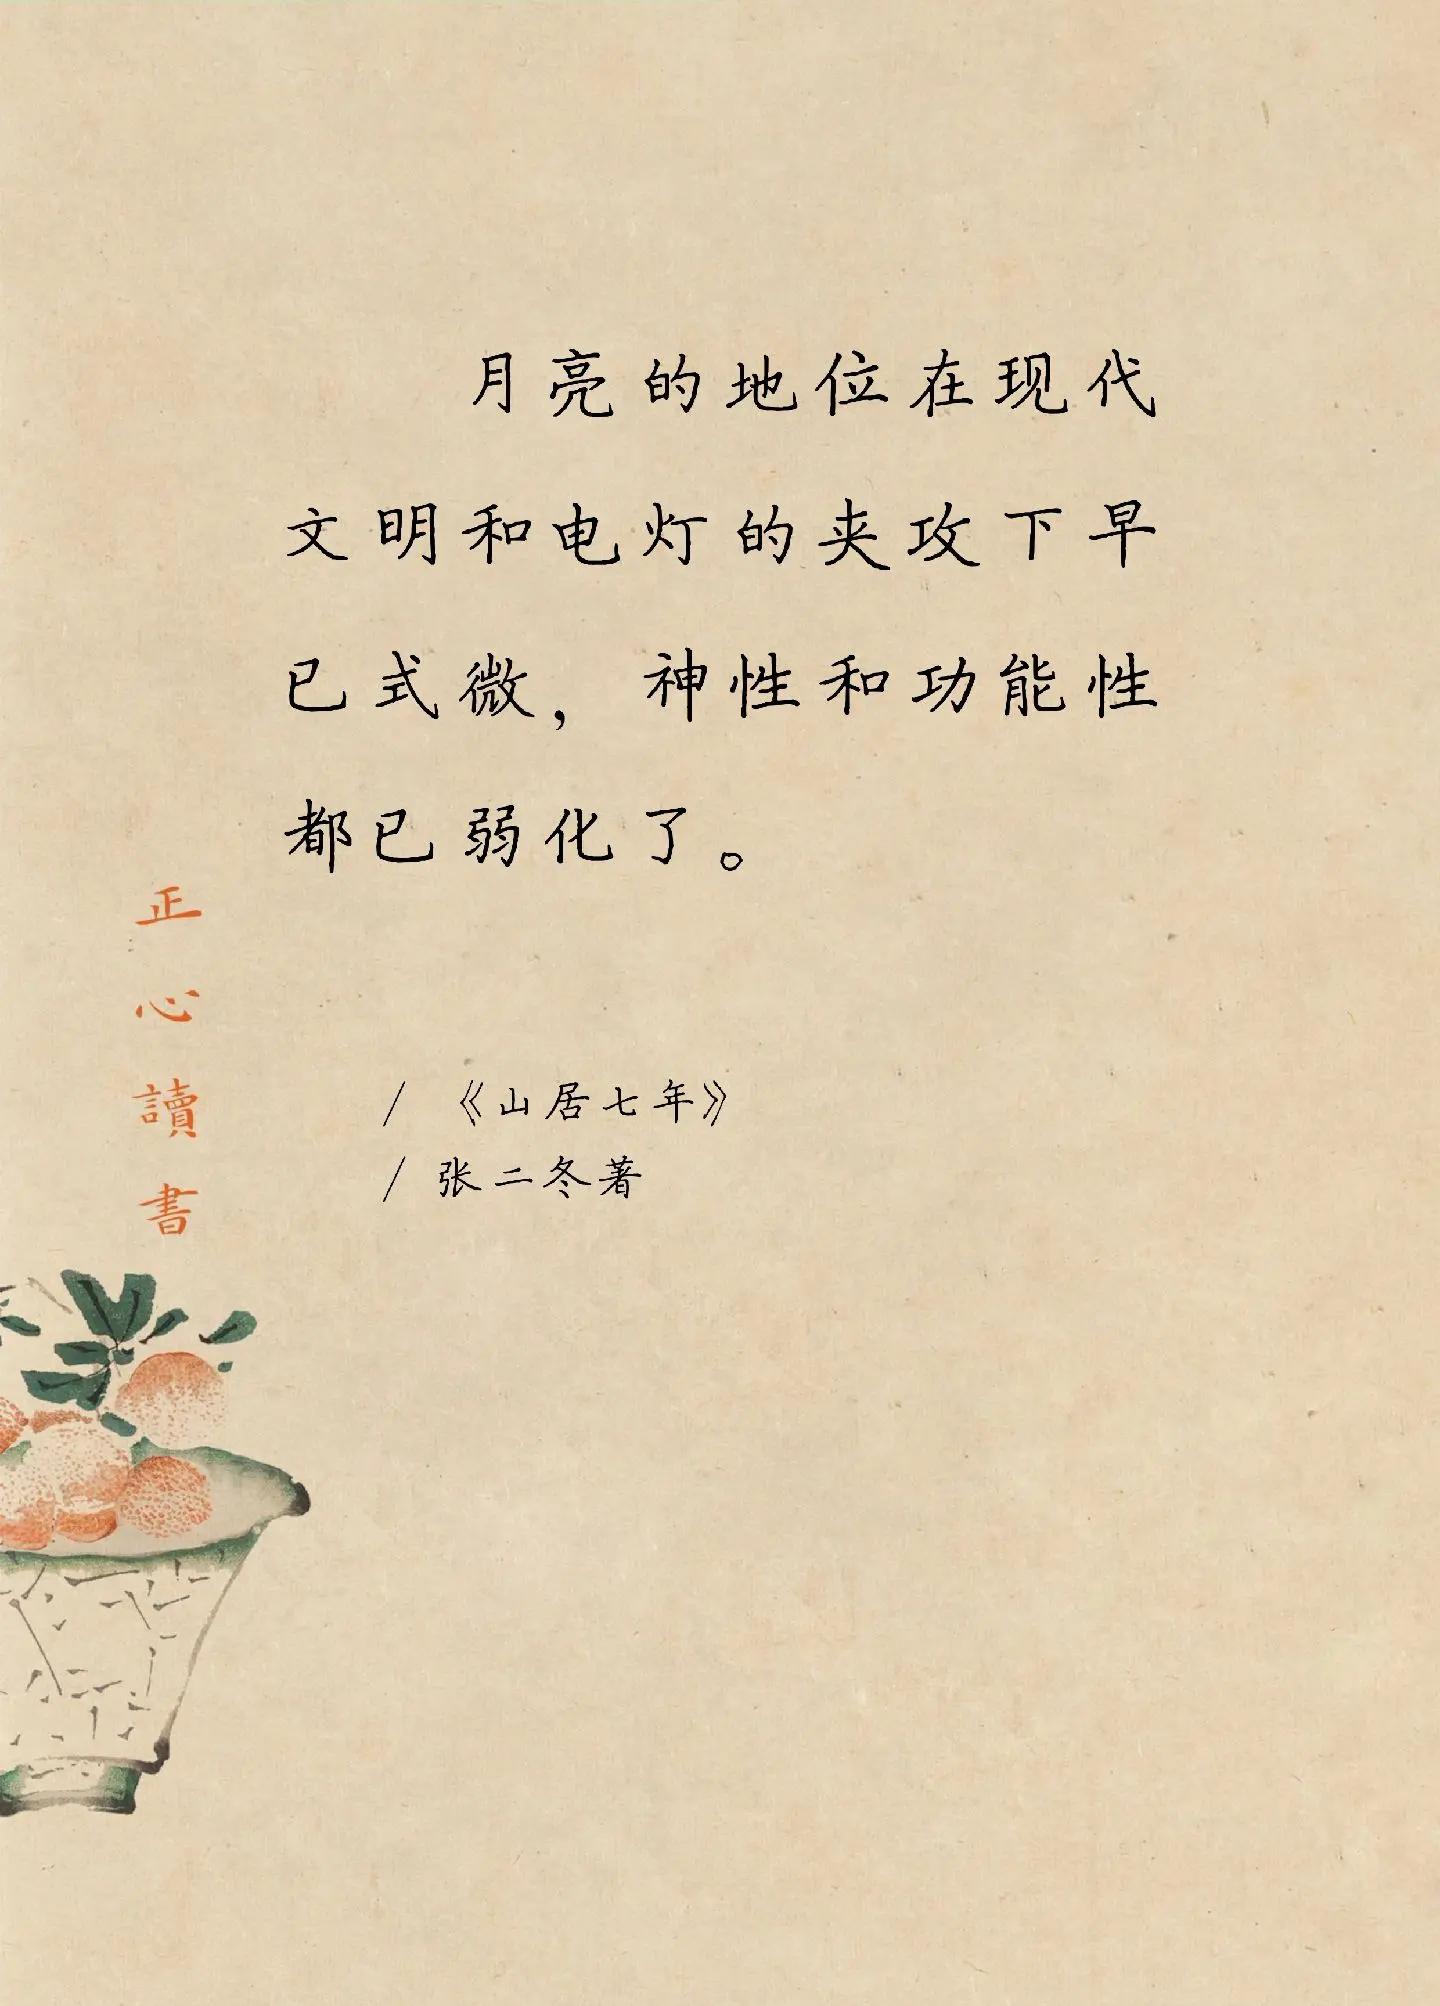 月亮的地位在现代
文明和电灯的夹攻下早
已式微，神性和功能性
都已弱化了。
正心讀書
/ 《山居七年》
/ 张二冬著